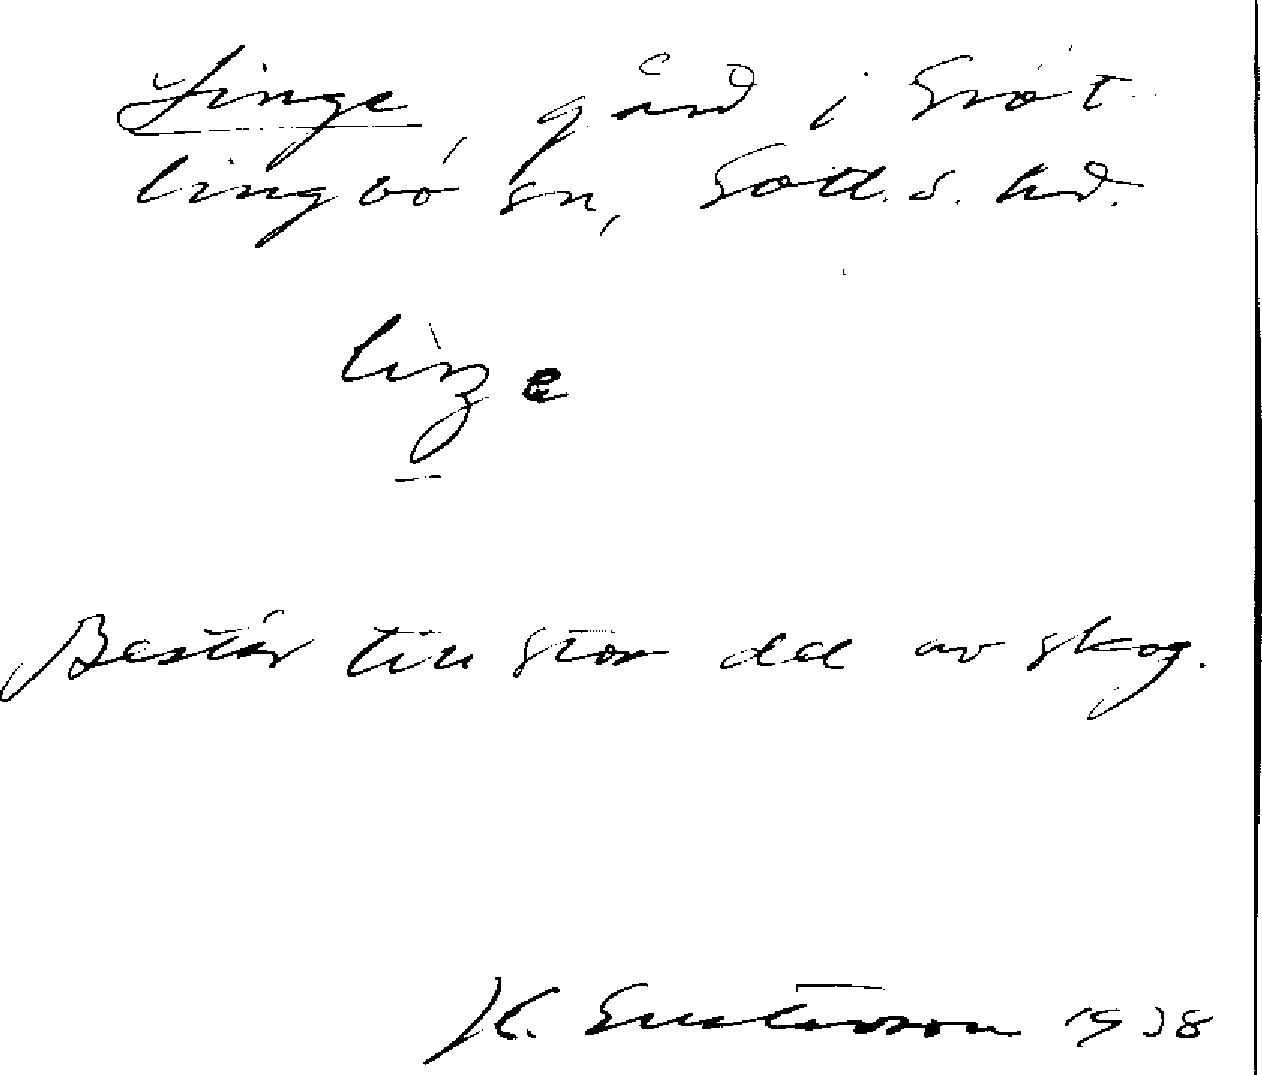 Linge, gård i Gröt
lingbo sn, Gotl. s. hd.
linge
Består till stor del av skog.
K. Gustavson 1938